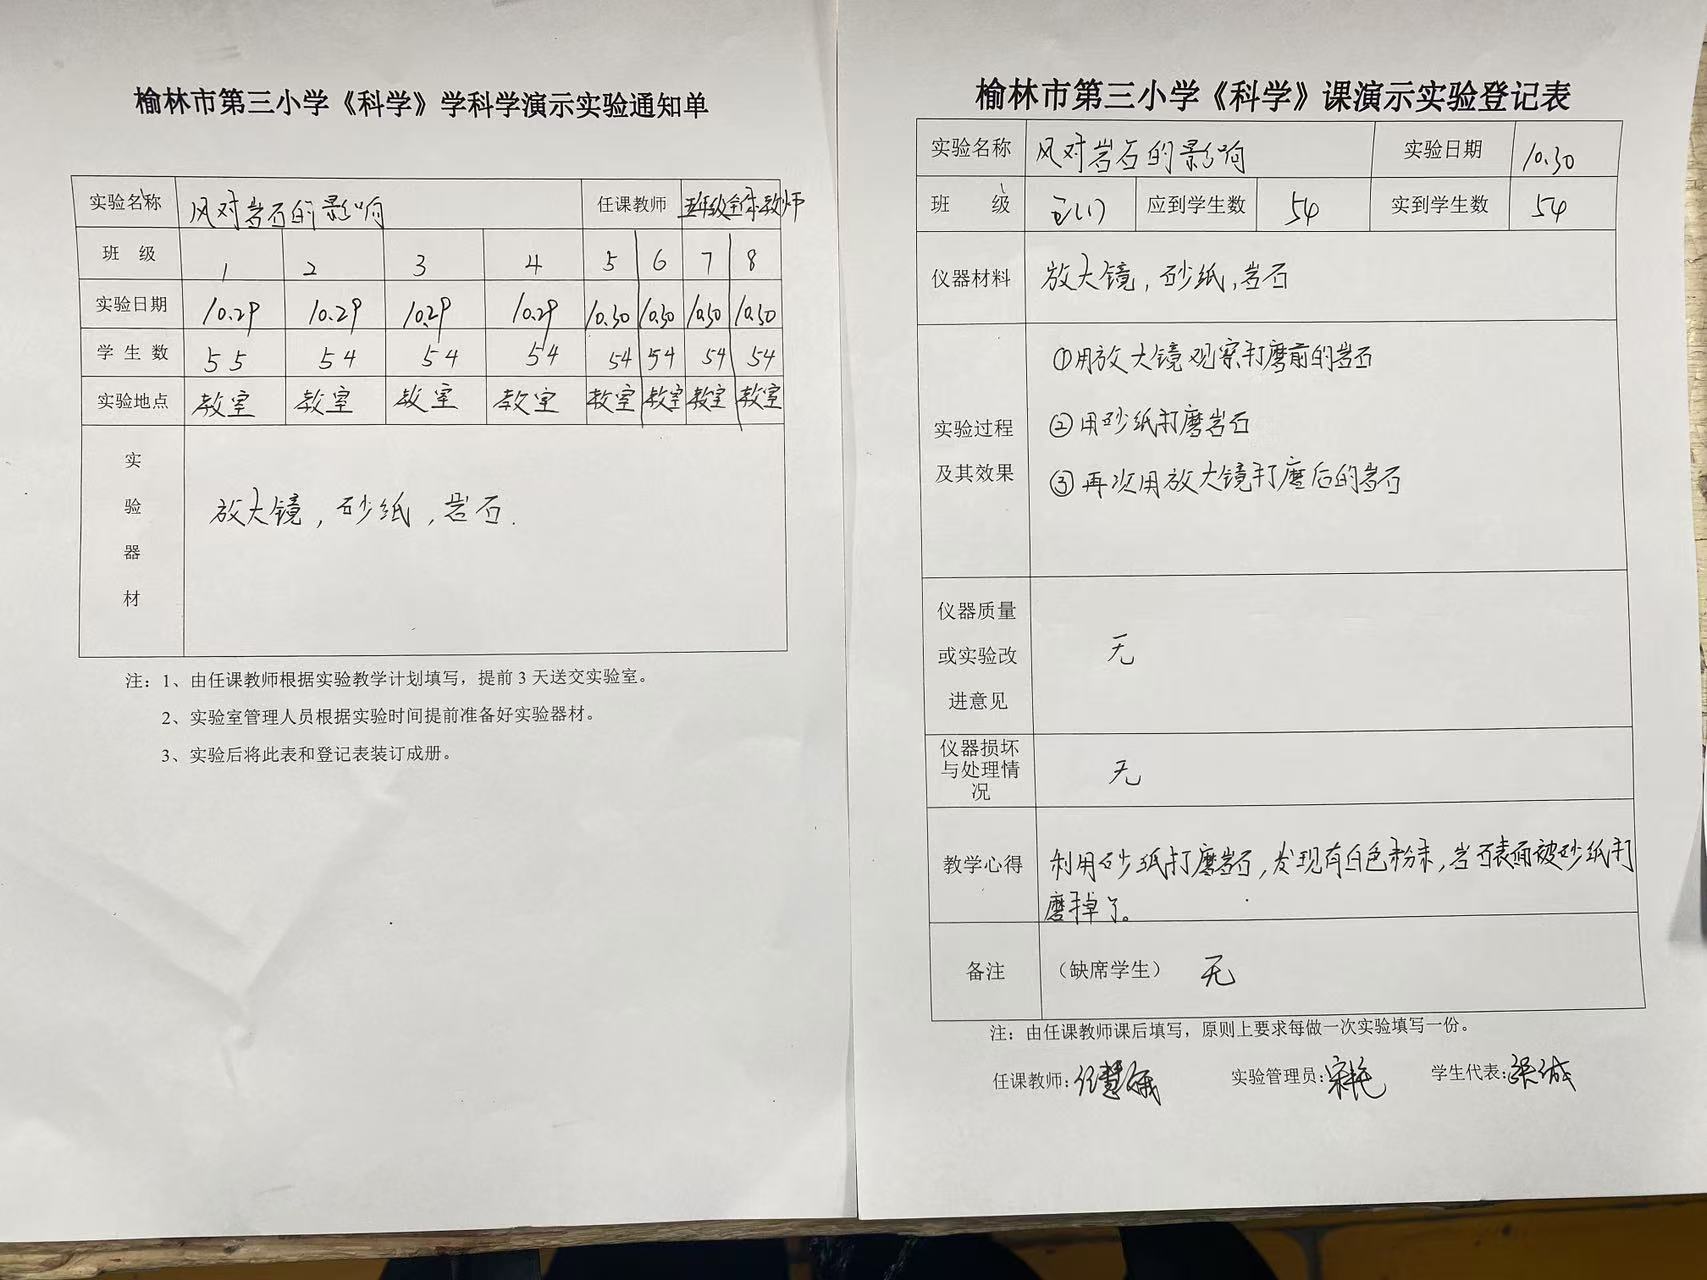 榆林市第三小学《科学》学科学演示实验通知单
实验名称 风对岩石的影响 任课教师 五年级全体教师
班 级 1 2 3 4 5 6 7 8
实验日期 10.29 10.29 10.29 10.29 10.30 10.30 10.30 10.30
学 生 数 55 54 54 54 54 54 54 54
实验地点 教室 教室 教室 教室 教室 教室 教室 教室
实
验
器
材
放大镜，砂纸，岩石.
注：1、由任课教师根据实验教学计划填写，提前3天送交实验室。
2、实验室管理人员根据实验时间提前准备好实验器材。
3、实验后将此表和登记表装订成册。
榆林市第三小学《科学》课演示实验登记表
实验名称 风对岩石的影响 实验日期 10.30
班 级 五(1) 应到学生数 54 实到学生数 54
仪器材料 放大镜，砂纸，岩石
实验过程
及其效果
①用放大镜观察打磨前的岩石
②用砂纸打磨岩石
③再次用放大镜打磨后的岩石
仪器质量
或实验改
进意见
无
仪器损坏
与处理情
况
无
教学心得 利用砂纸打磨岩石，发现有白色粉末，岩石表面被砂纸打
磨掉了。
备注 （缺席学生） 无
注：由任课教师课后填写，原则上要求每做一次实验填写一份。
任课教师： 实验管理员： 学生代表：